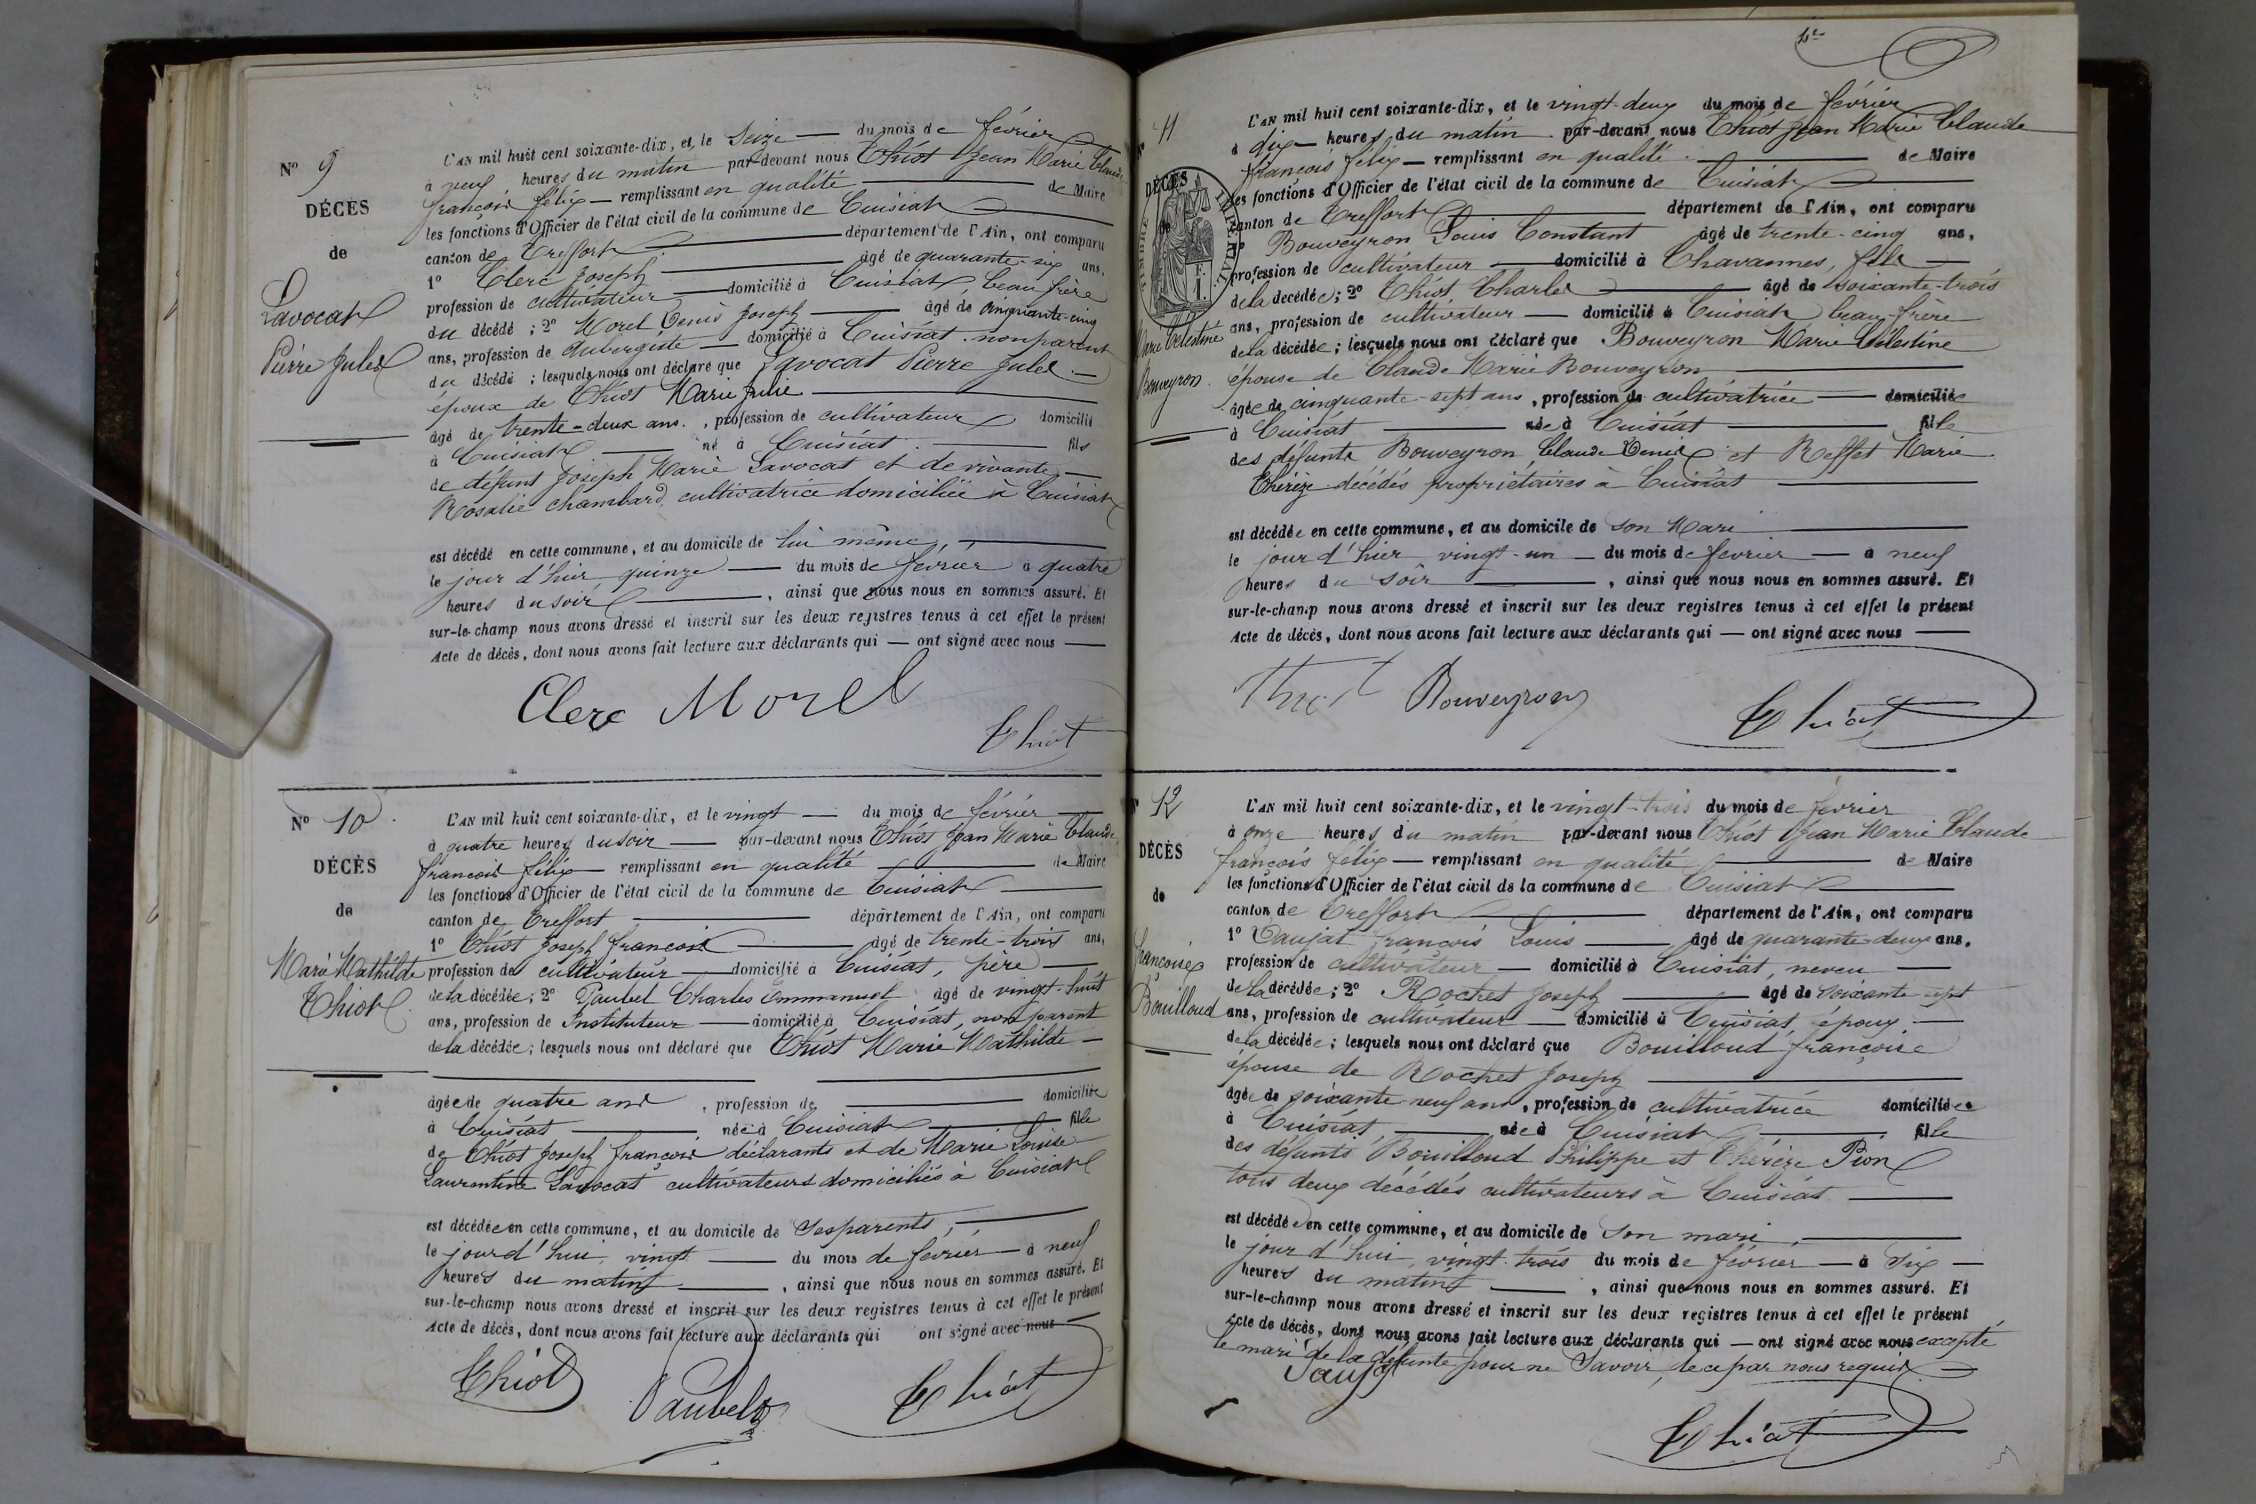 N° 9
DÉCÈS
de
Lavocat
Pierre Jules
L'AN mil huit cent soixante-dix, et le Seize — du mois de février
à neuf heures du matin par-devant nous Chiot Jean Marie Claude
françois félix — remplissant en qualité — de Maire
les fonctions d'Officier de l'état civil de la commune de Cuisiat
canton de Treffort — département de l'Ain, ont comparu
1° Clerc Joseph — âgé de quarante-six ans,
profession de cultivateur — domicilié à Cuisiat, beau frère
du décédé ; 2° Morel Denis Joseph — âgé de cinquante-cinq
ans, profession de Aubergiste — domicilié à Cuisiat. non parent
du décédé ; lesquels nous ont déclaré que Lavocat Pierre Jules —
époux de Chiot Marie Julie
âgé de trente-deux ans. , profession de cultivateur domicilié
à Cuisiat — né à Cuisiat. — fils
de défunt Joseph Marie Lavocat et de vivante —
Rosalie Chambard, cultivatrice domiciliée à Cuisiat
est décédé en cette commune, et au domicile de lui même, —
le jour d'hier quinze — du mois de février à quatre
heures du soir — , ainsi que nous nous en sommes assuré. Et
sur-le-champ nous avons dressé et inscrit sur les deux registres tenus à cet effet le présent
Acte de décès, dont nous avons fait lecture aux déclarants qui — ont signé avec nous —
Clerc Morel
Chiot
N° 10
DÉCÈS
de
Marie Mathilde
Chiot
L'AN mil huit cent soixante-dix, et le vingt — du mois de février
à quatre heures du soir — par-devant nous Chiot Jean Marie Claude
françois félix — remplissant en qualité — de Maire
les fonctions d'Officier de l'état civil de la commune de Cuisiat —
canton de Treffort — département de l'Ain, ont comparu
1° Chiot Joseph françois — âgé de trente-trois ans,
profession de cultivateur — domicilié à Cuisiat, père —
de la décédée ; 2° Paubel Charles Emmanuel âgé de vingt-huit
ans, profession de Instituteur — domicilié à Cuisiat, non parent
de la décédée ; lesquels nous ont déclaré que Chiot Marie Mathilde —
âgée de quatre ans , profession de — domiciliée
à Cuisiat — née à Cuisiat — fille
de Chiot Joseph françois déclarants et de Marie Louise
Laurentine Lavocat cultivateurs domiciliés à Cuisiat
est décédée en cette commune, et au domicile de Ses parents, —
le jourd'hui vingt — du mois de février — à neuf
heures du matin — , ainsi que nous nous en sommes assuré. Et
sur-le-champ nous avons dressé et inscrit sur les deux registres tenus à cet effet le présent
Acte de décès, dont nous avons fait lecture aux déclarants qui ont signé avec nous —
Chiot Paubel Chiot
N° 11
DÉCÈS
de
Marie Célestine
Bouveyron.
L'AN mil huit cent soixante-dix, et le vingt-deux du mois de février
à dix — heures du matin par-devant nous Chiot Jean Marie Claude
françois félix — remplissant en qualité — de Maire
les fonctions d'Officier de l'état civil de la commune de Cuisiat
canton de Treffort — département de l'Ain, ont comparu
1° Bouveyron Louis Constant âgé de trente-cinq ans,
profession de cultivateur — domicilié à Chavannes, fils —
de la décédée ; 2° Chiot Charles — âgé de soixante-trois
ans, profession de cultivateur — domicilié à Cuisiat beau-frère
de la décédée ; lesquels nous ont déclaré que Bouveyron Marie Célestine
épouse de Claude Marie Bouveyron
âgée de cinquante-sept ans , profession de cultivatrice — domiciliée
à Cuisiat — née à Cuisiat — fille
des défunts Bouveyron Claude Denis et Reffet Marie
Thérèze décédés propriétaires à Cuisiat —
est décédée en cette commune, et au domicile de son Mari —
le jour d'hier vingt-un — du mois de février — à neuf
heures du soir — , ainsi que nous nous en sommes assuré. Et
sur-le-champ nous avons dressé et inscrit sur les deux registres tenus à cet effet le présent
Acte de décès, dont nous avons fait lecture aux déclarants qui — ont signé avec nous —
Chiot Bouveyron Chiot
12
DÉCÈS
de
Françoise
Bouilloud
L'AN mil huit cent soixante-dix, et le vingt-trois du mois de février
à onze heures du matin par-devant nous Chiot Jean Marie Claude
françois félix — remplissant en qualité — de Maire
les fonctions d'Officier de l'état civil de la commune de Cuisiat
canton de Treffort — département de l'Ain, ont comparu
1° Daujat françois Louis — âgé de quarante-deux ans,
profession de cultivateur — domicilié à Cuisiat, neveu —
de la décédée ; 2° Rochet Joseph — âgé de soixante-sept
ans, profession de cultivateur — domicilié à Cuisiat, époux. —
de la décédée ; lesquels nous ont déclaré que Bouilloud françoise
épouse de Rochet Joseph —
âgée de soixante-neuf ans , profession de cultivatrice domiciliée
à Cuisiat — née à Cuisiat — fille
des défunts Bouilloud Philippe et Thérèze Pion
tous deux décédés cultivateurs à Cuisiat —
est décédée en cette commune, et au domicile de son mari, —
le jour d'hui vingt-trois du mois de février — à Six —
heures du matin — , ainsi que nous nous en sommes assuré. Et
sur-le-champ nous avons dressé et inscrit sur les deux registres tenus à cet effet le présent
Acte de décès, dont nous avons fait lecture aux déclarants qui — ont signé avec nous excepté
le mari de la défunte pour ne Savoir, de ce par nous requis —
Daujat
Chiot